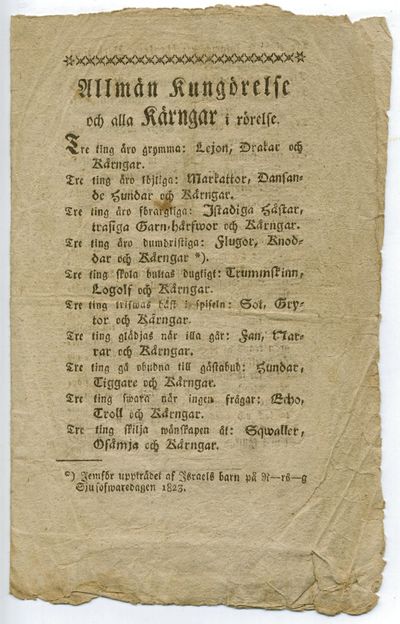 Allmän Kungörelse
och alla Kärngar i rörelse.
Tre ting äro grymma: Lejon, Drakar och
Kärngar.
Tre ting äro löjliga: Markattor, Dansan-
de Hundar och Kärngar.
Tre ting äro förargliga: Istadiga Hästar,
trasiga Garn-härfwor och Kärngar.
Tre ting äro dumdristiga: Flugor, Knod-
dar och Kärngar *).
Tre ting skola bultas dugtigt: Trumskinn,
Logolf och Kärngar.
Tre ting trifwas bäst i spiseln: Sot, Gry-
tor och Kärngar.
Tre ting glädjas när illa går: Fan, Nar-
rar och Kärngar.
Tre ting gå obudna till gästabud: Hundar,
Tiggare och Kärngar.
Tre ting swara när ingen frågar: Echo,
Troll och Kärngar.
Tre ting skilja wänskapen åt: Sqwaller,
Osämja och Kärngar.
*) Jemför uppträdet af Israels barn på R—rs—g
Sjusofwaredagen 1823.